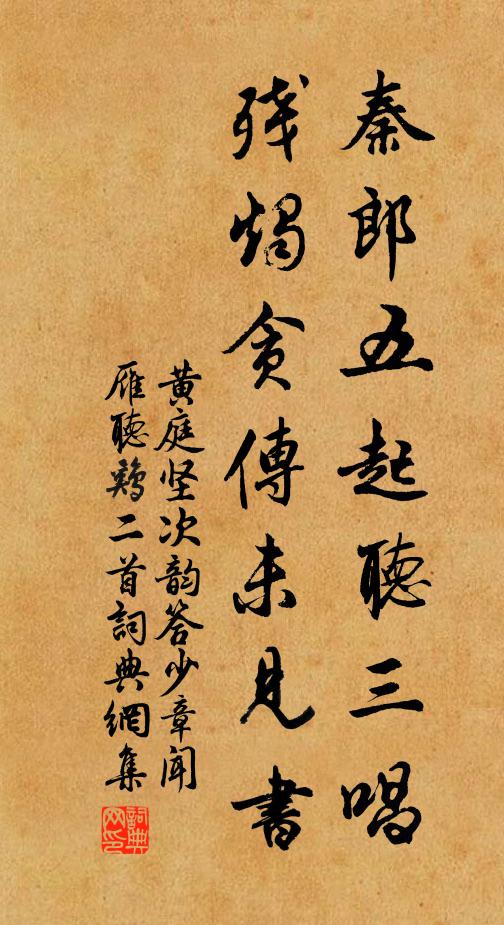 秦郎五起聽三唱
残燭貪傳未見書
黄庭坚次韵答少章闻
雁聽鷄二首詞典網集
詞典网印